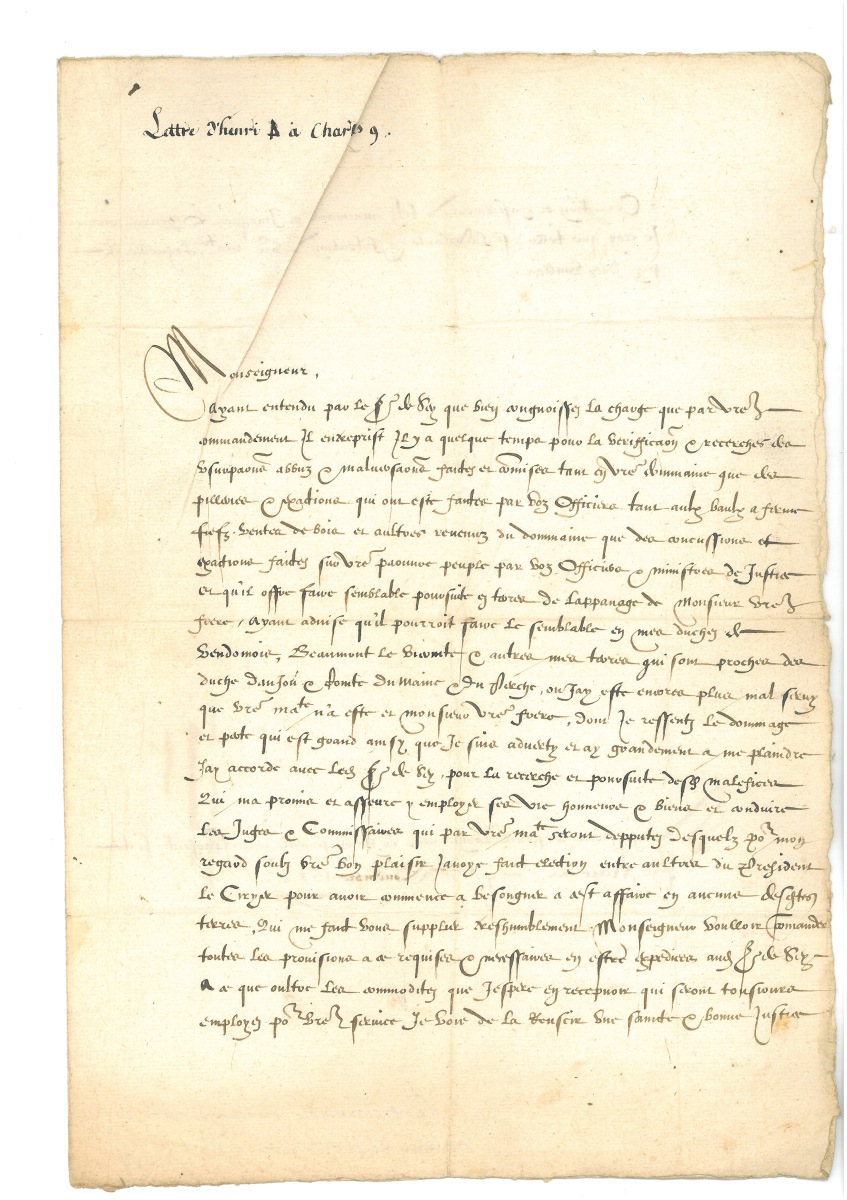 Lettre d'henri 4 à Charles 9.
Monseigneur,
Ayant entendu par le Sr de Sey que bien congnoissez la charge que par vre
commandement Il entreprist Il y a quelque temps pour la veriffication & recerches des
vsurpaons abbuz & maluersaons faictes et comises tant en vre dommaine que des
pilleries & exactions qui ont este faictes par voz Officiers tant aulx baulx a ferme
fiefz, ventes de bois et aultres reuenuz du dommaine que des concussions et
exactions faictes sur vre paouure peuple par voz Officiers & ministres de Justice
et qu'il offre faire semblable poursuite es terres de lappanage de Monsieur vre
frere, Ayant aduise qu'il pourroit faire le semblable en mes duchez de
Vendomois, Beaumont le viconte & autres mes terres qui sont proches des
duche danjou & Conte du Maine & du Perche, ou Jay este encores plus mal seruy
que vre mate n'a este et monsieur vre frere, dont Je ressentz le dommage
et perte qui est grand ainsy que Je suis aduerty et ay grandement a me plaindre
Jay accorde avec ledt Sr de Sey, pour la recerche et poursuite desdts malefices
Qui ma promis et asseure y employer ses vie honneurs & biens et conduire
Les Juges & Commissaires qui par vre mate seront depputez desquelz por mon
regard soubz vre bon plaisir Jauoye faict election entre aultres du President
le Ciryer pour auoir commence a besongner a cest affaire en aucune desdtes
terres, Qui me faict vous supplier treshumblement Monseigneur voulloir comander
toutes les prouisions a ce requises & necessaires en estre expediees audt Sr de Sey
A ce que oultre les commoditez que Jespere en recepuoir qui seront tousiours
employez por vre seruice Je voie de la Reussir vne saincte & bonne Justice